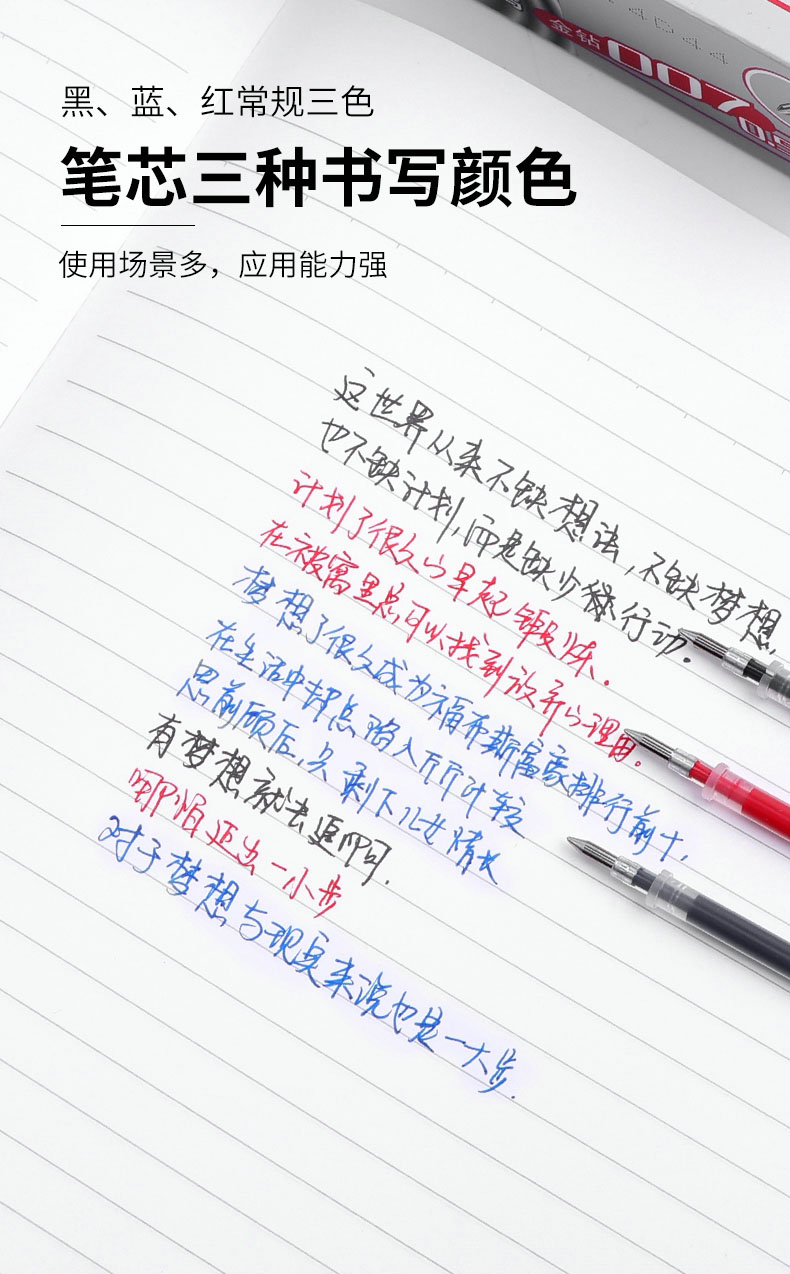 金钻
007
黑、蓝、红常规三色
笔芯三种书写颜色
使用场景多，应用能力强
这世界从来不缺想法，不缺梦想，
也不缺计划，而是缺少缘行动。
计划了很久的早起锻炼.
在被窝里总可以找到放弃的理由。
梦想了很久成为福布斯富豪排行前十，
在生活中却总陷入斤斤计较
思前顾后，只剩下儿女情长
有梦想就去追啊.
哪怕迈出一小步
对于梦想与现实来说也是一大步.